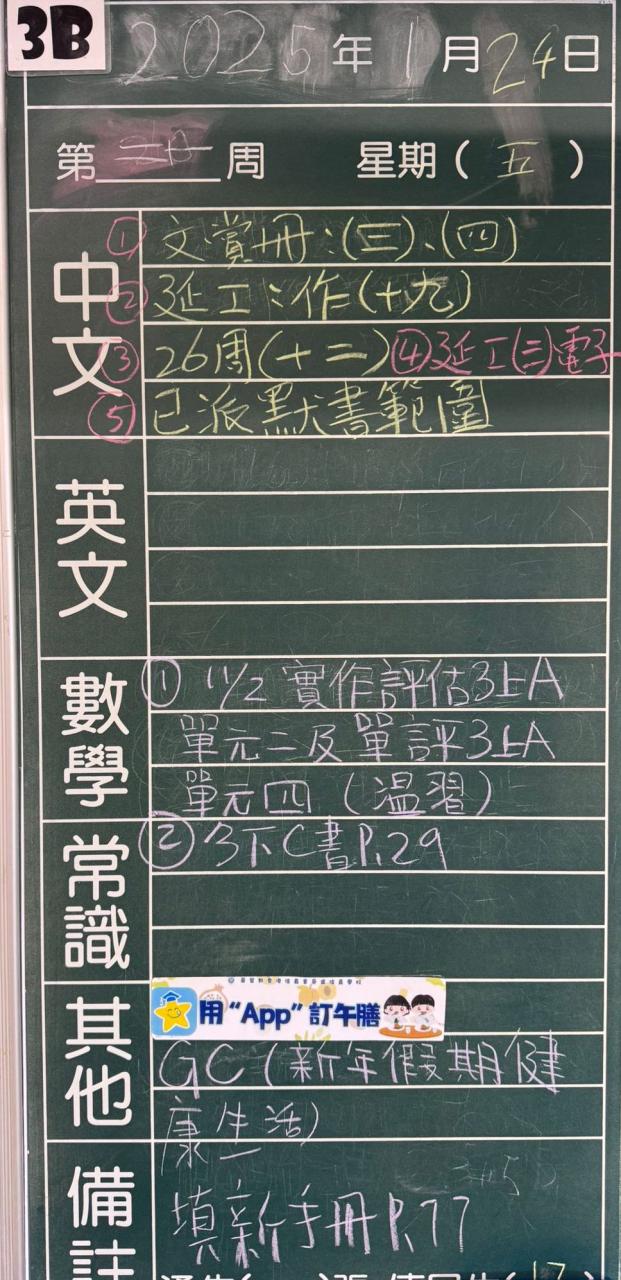 3B
2025年1月24日
第二十周 星期(五)
中文
①文賞冊:(三)、(四)
②延工:作(十九)
③26周(十二)④延工(三)電子
⑤已派默書範圍
英文
數學
①11/2 實作評估3上A
單元二及單評3上A
單元四(溫習)
常識
②3下C書P.29
其他
用“App”訂午膳
GC(新年假期健
康生活)
備註
填新手冊P.77